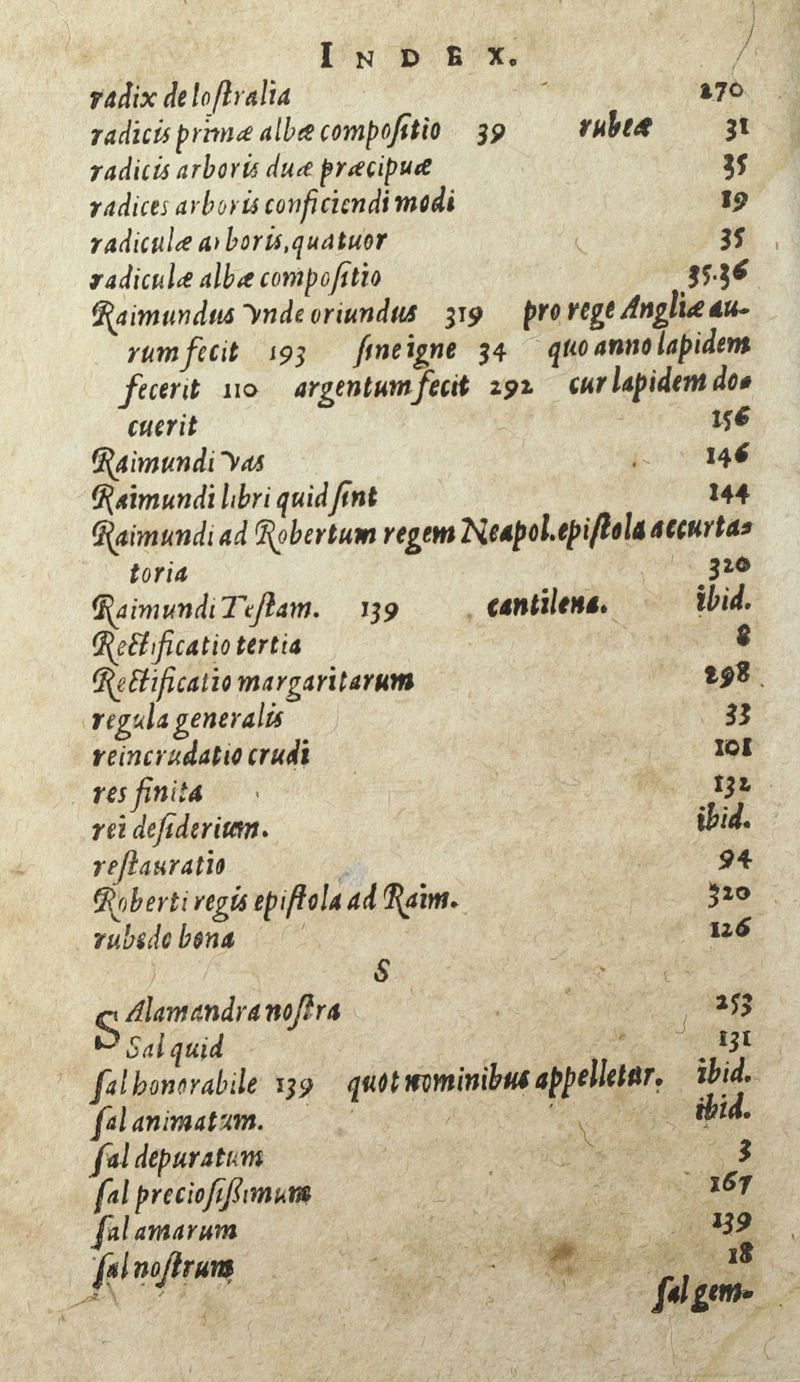 INDEX.
radix de loſtralia 270
radicis primæ albæ compoſitio 39 rubeæ 31
radicis arboris duæ præcipuæ 35
radices arboris conficiendi modi 19
radiculæ arboris, quatuor 35
radiculæ albæ compoſitio 35.36
Raimundus vnde oriundus 319 pro rege Angliæ au-
rum fecit 193 ſine igne 34 quo anno lapidem
fecerit 110 argentum fecit 292 cur lapidem do-
cuerit 156
Raimundi vas 146
Raimundi libri quid ſint 144
Raimundi ad Robertum regem Neapol. epiſtola accurta-
toria 320
Raimundi Teſtam. 139 cantilena. ibid.
Rectificatio tertia 8
Rectificatio margaritarum 298
regula generalis 33
reincrudatio crudi 101
res finita 132
rei deſiderium. ibid.
reſtauratio 94
Roberti regis epiſtola ad Raim. 320
rubedo bona 126
S
SAlamandra noſtra 253
Sal quid 131
ſal honorabile 139 quot nominibus appelletur. ibid.
ſal animatum. ibid.
ſal depuratum 3
ſal precioſiſſimum 167
ſal amarum 139
ſal noſtrum 18
ſal gem-